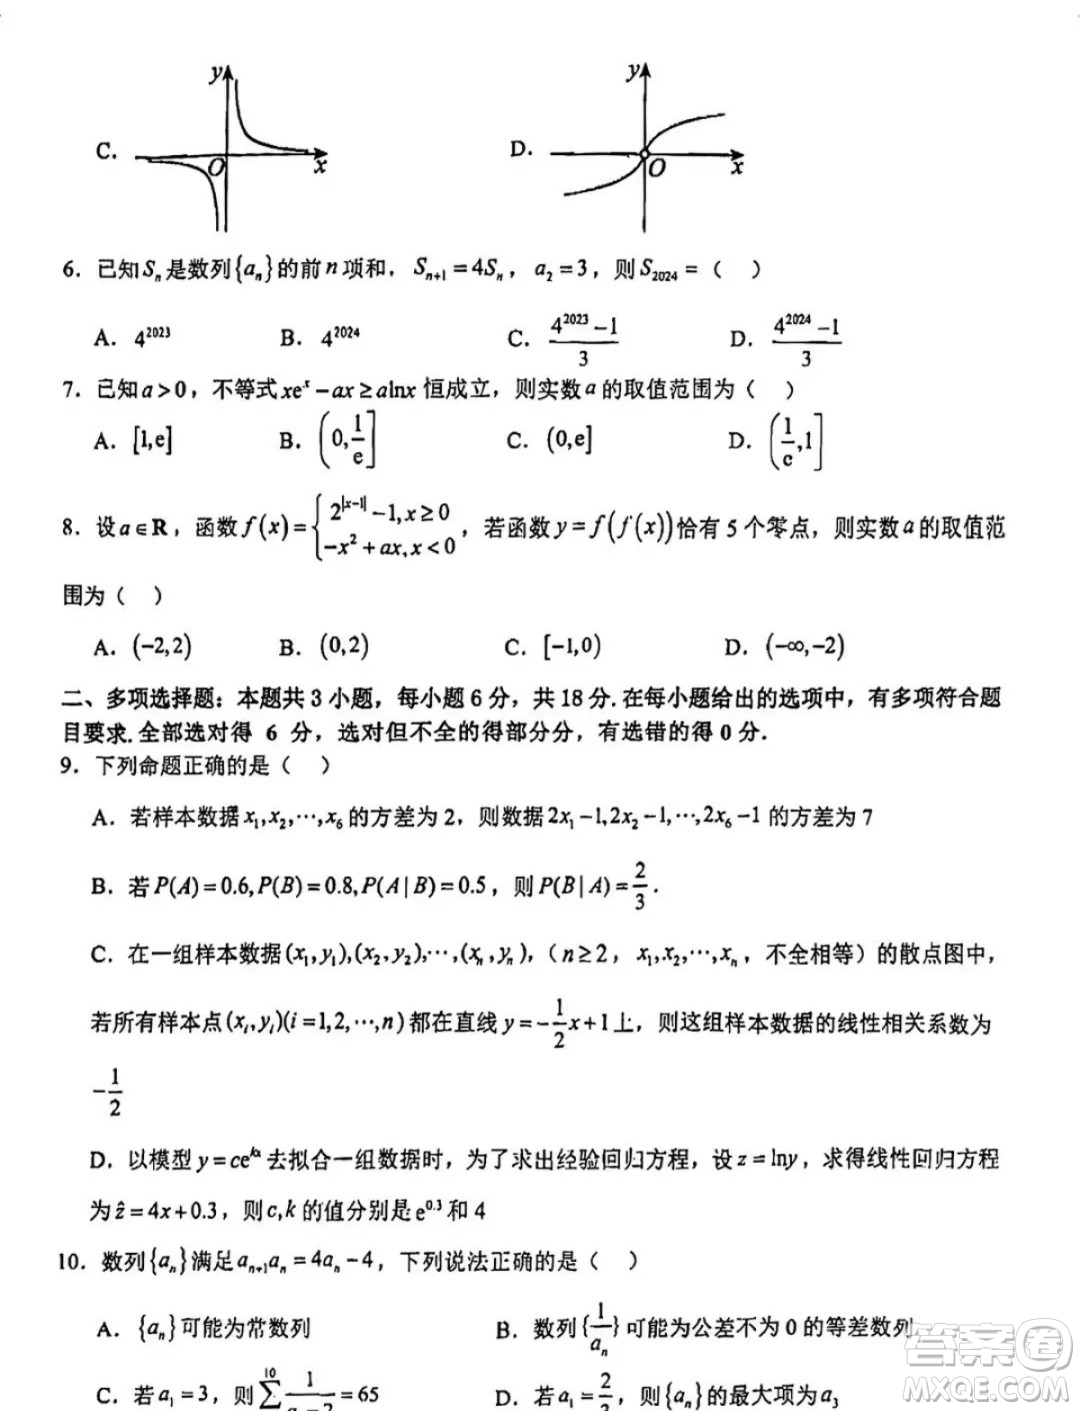 y
C.
O
x
y
D.
O
x
6. 已知Sₙ是数列{aₙ}的前n项和，Sₙ₊₁=4Sₙ，a₂=3，则S₂₀₂₄=（　）
A. 4²⁰²³　B. 4²⁰²⁴　C. (4²⁰²³−1)/3　D. (4²⁰²⁴−1)/3
7. 已知a>0，不等式xeˣ−ax≥alnx恒成立，则实数a的取值范围为（　）
A. [1,e]　B. (0,1/e]　C. (0,e]　D. (1/e,1]
8. 设a∈R，函数f(x)={2^|x−1|−1,x≥0；−x²+ax,x<0，若函数y=f(f(x))恰有5个零点，则实数a的取值范
围为（　）
A. (−2,2)　B. (0,2)　C. [−1,0)　D. (−∞,−2)
二、多项选择题：本题共3小题，每小题6分，共18分.在每小题给出的选项中，有多项符合题
目要求.全部选对得 6 分，选对但不全的得部分分，有选错的得0分.
9. 下列命题正确的是（　）
A. 若样本数据x₁,x₂,⋯,x₆的方差为2，则数据2x₁−1,2x₂−1,⋯,2x₆−1的方差为7
B. 若P(A)=0.6,P(B)=0.8,P(A|B)=0.5，则P(B|A)=2/3.
C. 在一组样本数据(x₁,y₁),(x₂,y₂),⋯,(xₙ,yₙ),（n≥2，x₁,x₂,⋯,xₙ，不全相等）的散点图中，
若所有样本点(xᵢ,yᵢ)(i=1,2,⋯,n)都在直线y=−1/2x+1上，则这组样本数据的线性相关系数为
−1/2
D. 以模型y=ceᵏˣ去拟合一组数据时，为了求出经验回归方程，设z=lny，求得线性回归方程
为ẑ=4x+0.3，则c,k的值分别是e⁰·³和4
10. 数列{aₙ}满足aₙ₊₁aₙ=4aₙ−4，下列说法正确的是（　）
A. {aₙ}可能为常数列　B. 数列{1/aₙ}可能为公差不为0的等差数列
C. 若a₁=3，则∑¹⁰ 1/(aₙ−2)=65　D. 若a₁=2/3，则{aₙ}的最大项为a₃
答案圈
MXQE.COM